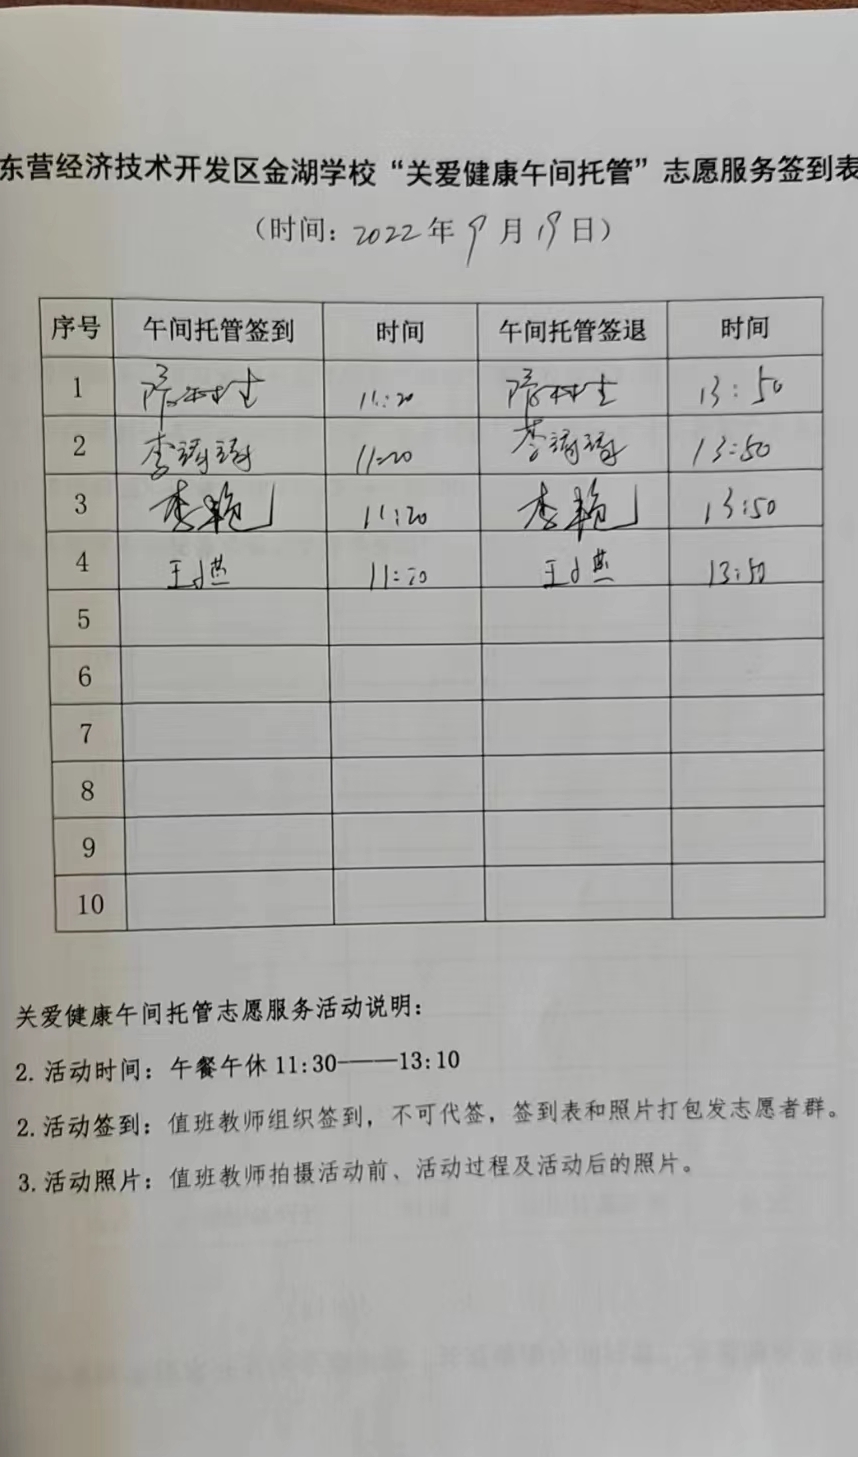 东营经济技术开发区金湖学校“关爱健康午间托管”志愿服务签到表
（时间：2022年9月19日）
序号 午间托管签到 时间 午间托管签退 时间
1 11:20 13:50
2 李 11:20 李 13:50
3 李艳 11:20 李艳 13:50
4 王小燕 11:20 王小燕 13:50
5
6
7
8
9
10
关爱健康午间托管志愿服务活动说明：
2.活动时间：午餐午休 11:30——13:10
2.活动签到：值班教师组织签到，不可代签，签到表和照片打包发志愿者群。
3.活动照片：值班教师拍摄活动前、活动过程及活动后的照片。